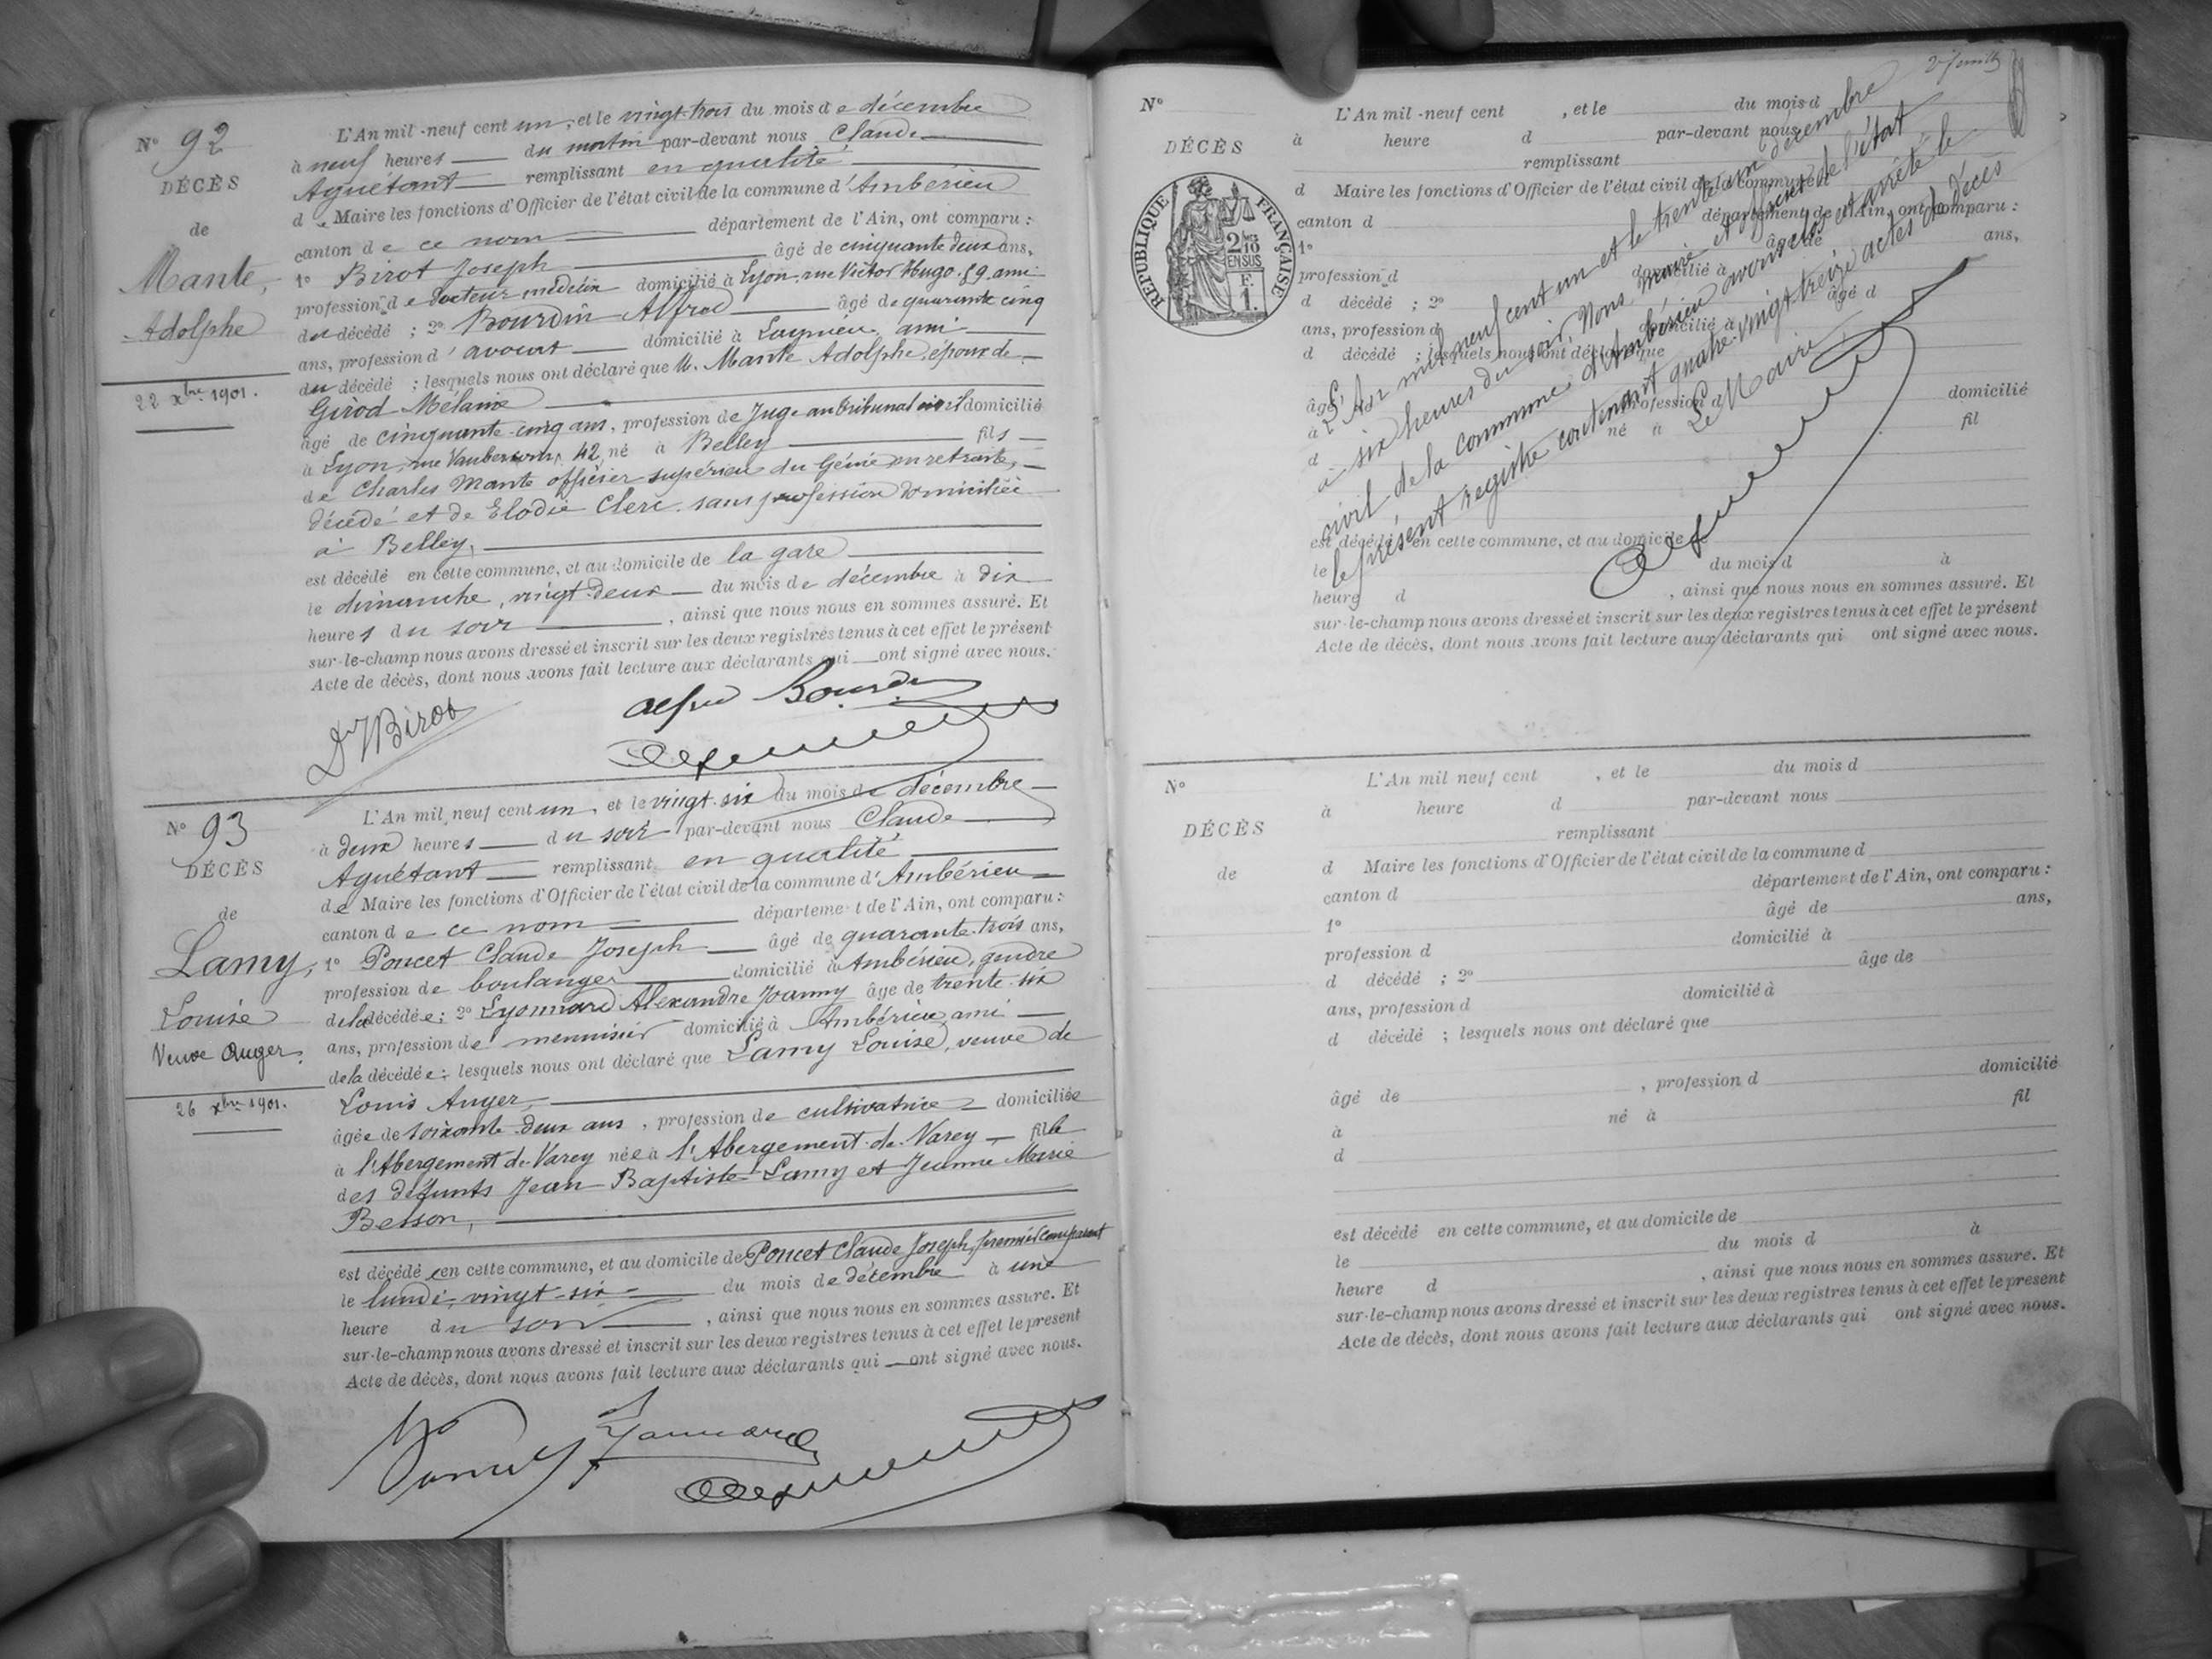 N° 92
DÉCÈS
de
Mante,
Adolphe
22 xbre 1901.
L'An mil-neuf cent un, et le vingt-trois du mois de décembre
à neuf heures du matin par-devant nous Claude
Aguétant remplissant en qualité
de Maire les fonctions d'Officier de l'état civil de la commune d'Ambérieu
canton de ce nom département de l'Ain, ont comparu :
1° Birot Joseph âgé de cinquante deux ans,
profession de docteur médecin domicilié à Lyon, rue Victor Hugo. 59. ami
du décédé ; 2° Bourdin Alfred âgé de quarante cinq
ans, profession d'avocat domicilié à Lagnieu, ami
du décédé ; lesquels nous ont déclaré que M. Mante Adolphe, époux de
Girod Mélanie
âgé de cinquante-cinq ans, profession de Juge au tribunal civil domicilié
à Lyon, rue Vaubecour, 42, né à Belley fils
de Charles Mante officier supérieur du Génie en retraite,
décédé et de Elodie Clerc. sans profession domiciliée
à Belley,
est décédé en cette commune, et au domicile de la gare
le dimanche, vingt-deux du mois de décembre à dix
heures du soir, ainsi que nous nous en sommes assuré. Et
sur-le-champ nous avons dressé et inscrit sur les deux registres tenus à cet effet le présent
Acte de décès, dont nous avons fait lecture aux déclarants qui ont signé avec nous.
Dr J Birot
Alfred Bourdin
N° 93
DÉCÈS
de
Lamy,
Louise
Veuve Auger.
26 xbre 1901.
L'An mil neuf cent un, et le vingt-six du mois de décembre
à deux heures du soir par-devant nous Claude
Aguétant remplissant en qualité
de Maire les fonctions d'Officier de l'état civil de la commune d'Ambérieu
canton de ce nom département de l'Ain, ont comparu :
1° Poncet Claude Joseph âgé de quarante-trois ans,
profession de boulanger domicilié à Ambérieu, gendre
de la décédée ; 2° Lyonnard Alexandre Joanny âge de trente-six
ans, profession de menuisier domicilié à Ambérieu, ami
de la décédée ; lesquels nous ont déclaré que Lamy Louise, veuve de
Louis Auger,
âgée de soixante-deux ans, profession de cultivatrice domiciliée
à l'Abergement-de-Varey née à l'Abergement-de-Varey fille
des défunts Jean-Baptiste Lamy et Jeanne Marie
Besson,
est décédée en cette commune, et au domicile de Poncet Claude Joseph, premier comparant
le lundi, vingt-six du mois de décembre à une
heure du soir, ainsi que nous nous en sommes assure. Et
sur-le-champ nous avons dressé et inscrit sur les deux registres tenus à cet effet le present
Acte de décès, dont nous avons fait lecture aux déclarants qui ont signé avec nous.
N°
DÉCÈS
RÉPUBLIQUE FRANÇAISE
2/10 EN SUS
F. 1.
L'An mil-neuf cent , et le du mois d
à heure d par-devant nous
remplissant
d Maire les fonctions d'Officier de l'état civil de la commune d
canton d département de l'Ain, ont comparu :
1° âgé de ans,
profession d domicilié à
d décédé ; 2° âgé d
ans, profession d domicilié à
d décédé ; lesquels nous ont déclaré que
âgé de profession d domicilié
à né à fil
d
est décédé en cette commune, et au domicile
le du mois d à
heure d , ainsi que nous nous en sommes assuré. Et
sur-le-champ nous avons dressé et inscrit sur les deux registres tenus à cet effet le présent
Acte de décès, dont nous avons fait lecture aux déclarants qui ont signé avec nous.
L'An mil neuf cent un et le trente-un décembre
à six heures du soir, Nous Maire et officier de l'état
civil de la commune d'Ambérieu avons clos et arrêté le
le présent registre contenant quatre-vingt treize actes de décès
Le Maire,
N°
DÉCÈS
de
L'An mil neuf cent , et le du mois d
à heure d par-devant nous
remplissant
d Maire les fonctions d'Officier de l'état civil de la commune d
canton d département de l'Ain, ont comparu :
1° âgé de ans,
profession d domicilié à
d décédé ; 2° âge de
ans, profession d domicilié à
d décédé ; lesquels nous ont déclaré que
âgé de , profession d domicilié
à né à fil
d
est décédé en cette commune, et au domicile de
le du mois d à
heure d , ainsi que nous nous en sommes assure. Et
sur-le-champ nous avons dressé et inscrit sur les deux registres tenus à cet effet le present
Acte de décès, dont nous avons fait lecture aux déclarants qui ont signé avec nous.